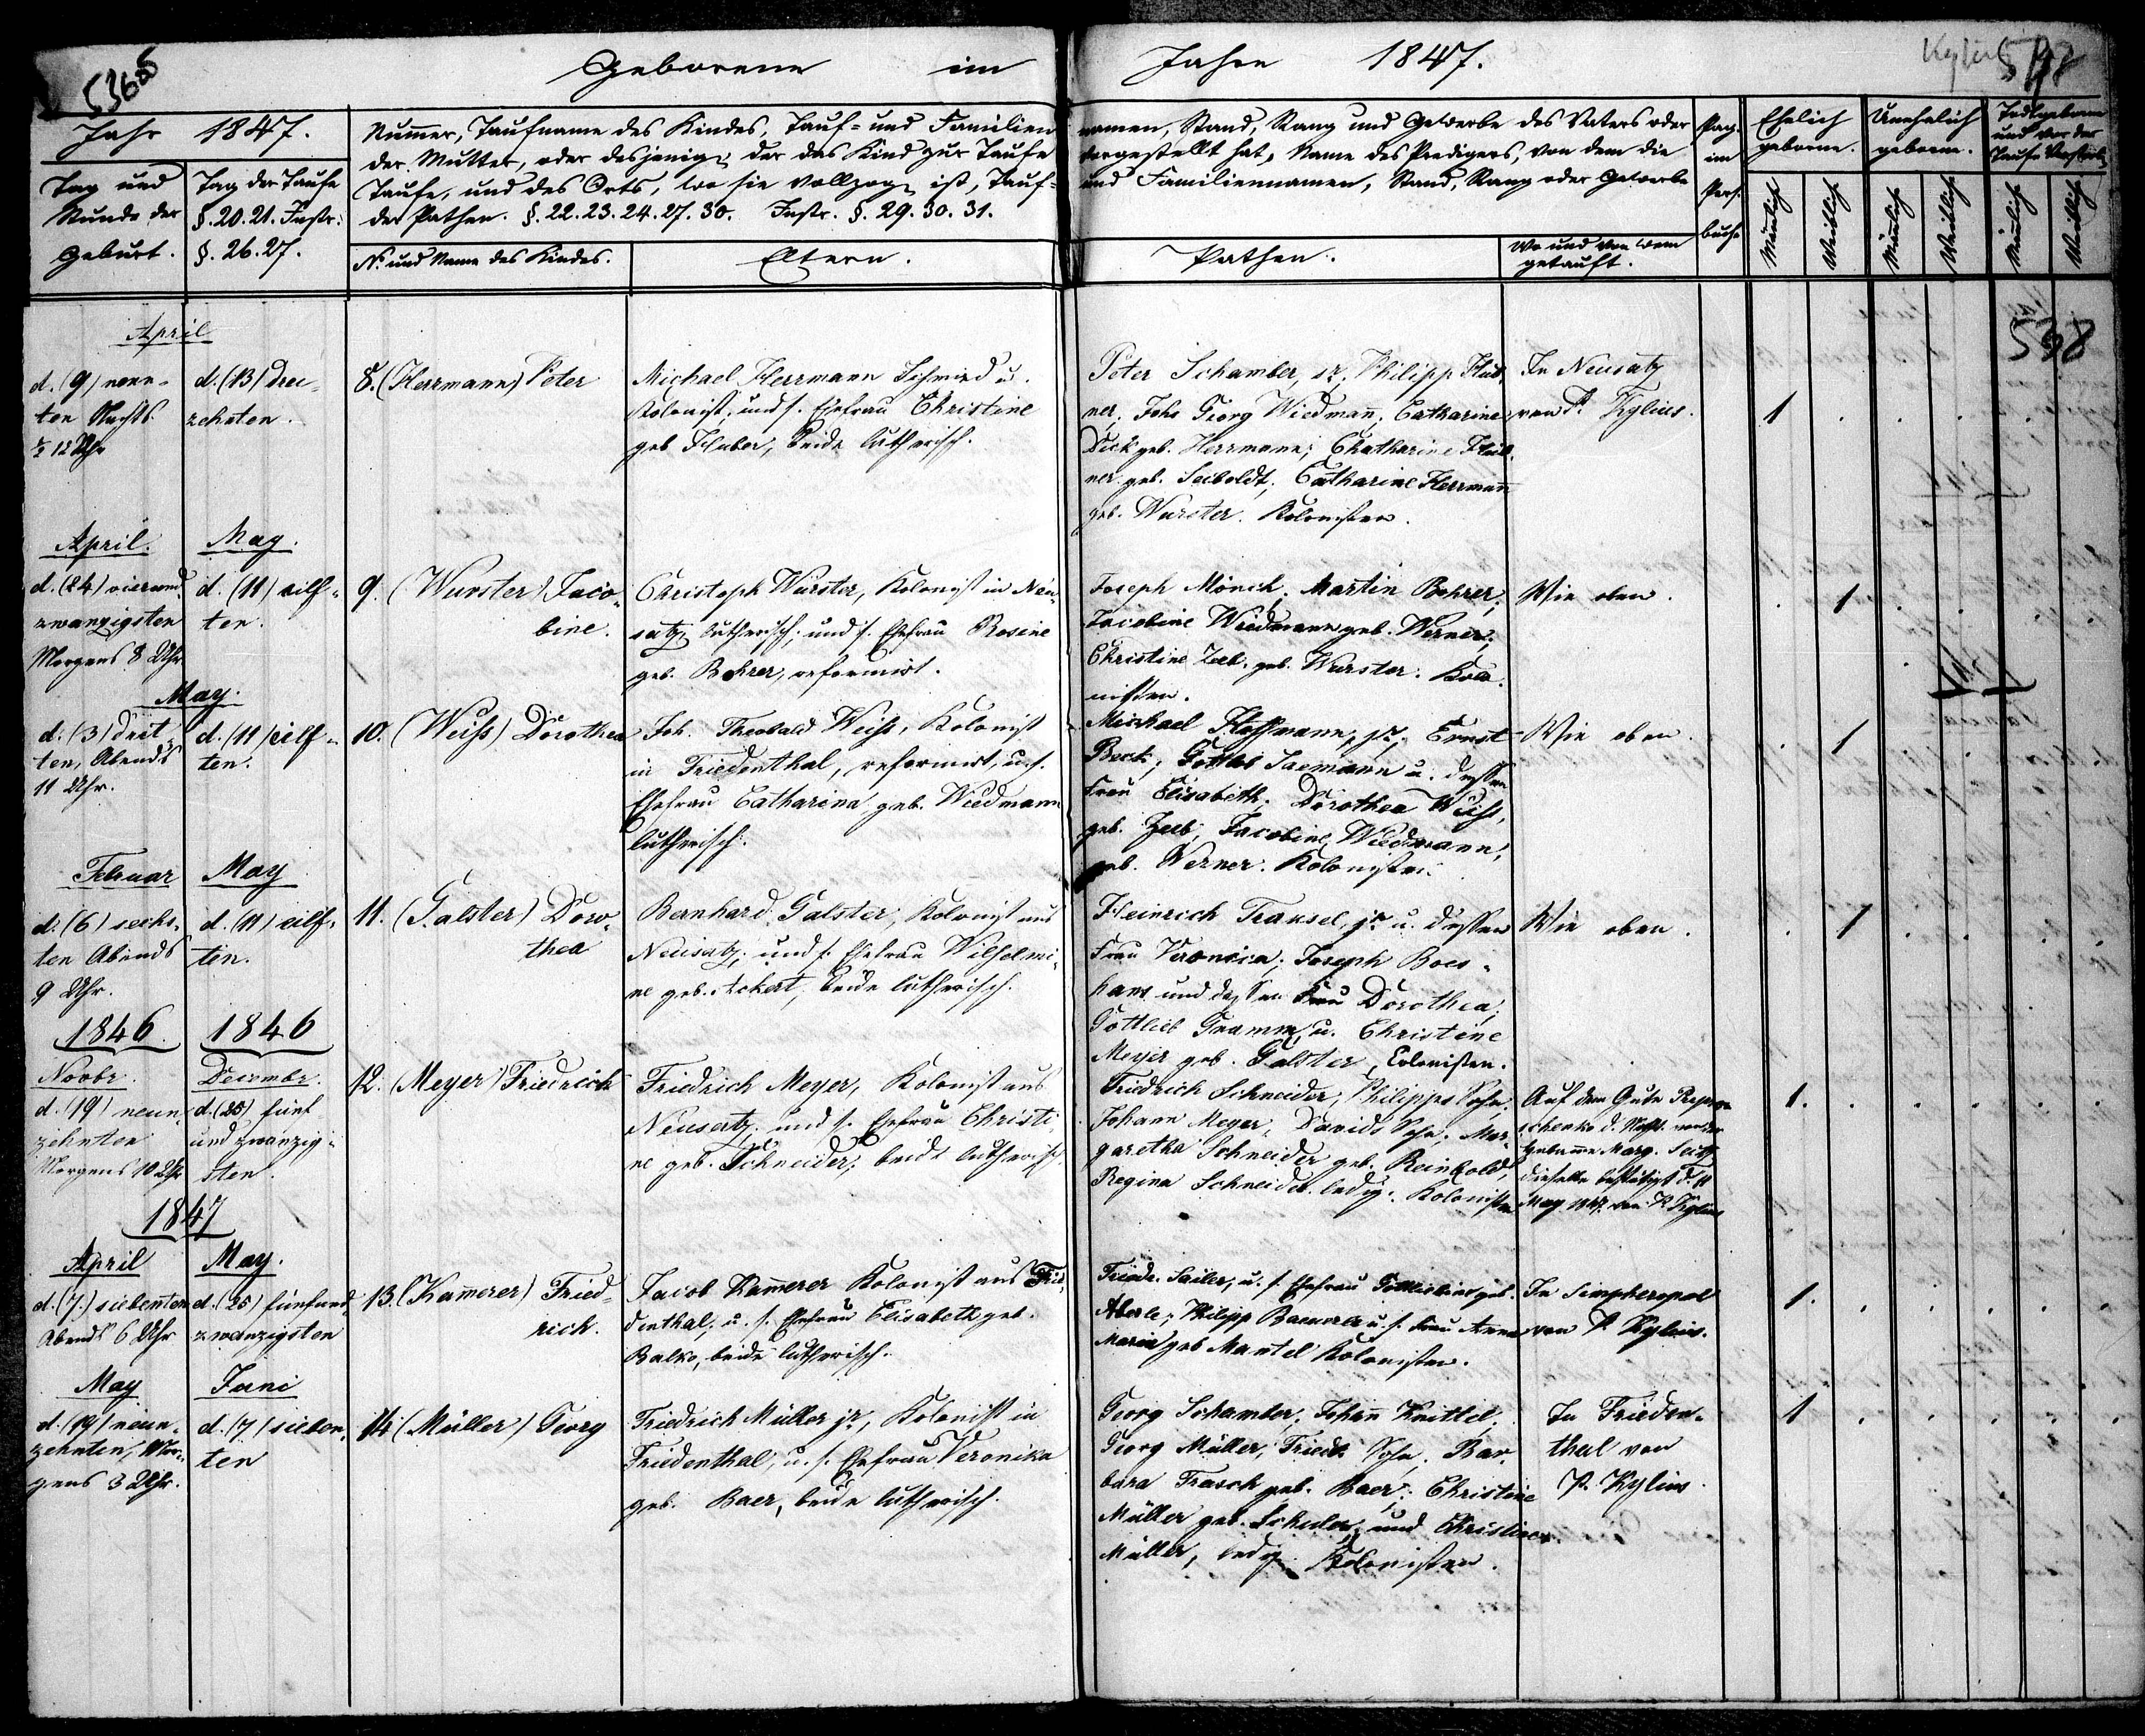 Geborene im Jahre 1847.
538
Jahr 1847.
Tag und
Stunde der
Geburt.
Tag der Taufe
§. 20. 21. Instr:
§. 26. 27.
Numer, Taufname des Kindes, Tauf- und Familien
der Mutter, oder desjenig. der das Kind zur Taufe
Taufe, und des Orts, wo sie vollzog. ist, Tauf-
der Pathen. §. 22. 23. 24. 27. 30. Instr. §. 29. 30. 31.
No und Name des Kindes.
Eltern.
namen, Stand, Rang und Gewerbe des Vaters oder
vorgestellt hat, Name des Predigers, von dem die
und Familiennamen, Stand, Rang oder Gewerbe
Pathen.
Wo und von wem
getauft.
Pag.
im
Pers.
buche
Ehelich
geborene.
Unehelich
geborene.
Todtgeborene
und vor der
Taufe Verstorb.
Mänlich
Weiblich
Mänlich
Weiblich
Mänlich
Weiblich
538
April
d. (9) neun-
ten Nachts
½ 12 Uhr
d. (13) drei-
zehnten.
8. (Herrmann) Peter
Michael Herrmann Schmied u.
Kolonist, und s. Ehefrau Christine
geb Huber, beide lutherisch.
Peter Schamber, Philipp
ner, Joh Georg Wiedmann, Catharine
Dick geb. Herrmann; Chatharine
ner geb. Seiboldt, Catharine Herrmann
geb. Wurster. Kolonisten.
In Neusatz
von P. Kylius.
1
April. May.
d. (24) vierund
zwanzigsten
Morgens 8 Uhr
d. (11) eilf-
ten.
9. (Wurster) Jaco-
bine.
Christoph Wurster, Kolonist in Neu-
satz lutherisch; und s. Ehefrau Rosine
geb. Bohrer, reformirt.
Joseph Mönch, Martin Bohrer,
Jacobine Wiedmann geb. Werner;
Christine Zeeb. geb. Wurster. Kolo-
nisten.
Wie oben.
1
May.
d. (3) drit-
ten, Abends
11 Uhr.
d. (11) eilf-
ten.
10. (Weiss) Dorothea
Joh. Theobald Weiss, Kolonist
in Friedenthal, reformirt, u. s.
Ehefrau Catharina geb. Wiedmann
lutherisch.
Michael Hoffmann, jr, Ernst
Beck; Gottlieb Saemann u. dessen
Frau Elisabeth; Dorothea Weiss,
geb. Zeeb, Jacobine Wiedmann,
geb. Werner. Kolonisten.
Wie oben.
1
Februar May
d. (6) sechs-
ten Abends
9 Uhr.
d. (11) eilf-
ten.
11. (Galster) Doro-
thea
Bernhard Galster, Kolonist aus
Neusatz, und s. Ehefrau Wilhelmi-
ne geb. Ackert, beide lutherisch.
Heinrich Traxsel, jr u. dessen
Frau Veronica; Joseph Boes-
hans und dessen Frau Dorothea;
Gottlieb Gramm, u. Christine
Meyer geb. Galster, Colonisten.
Wie oben.
1
1846 1846
Novbr. Decembr.
d. (19) neun-
zehnten
Morgens 10 Uhr
d. (25) fünf
und zwanzig-
sten.
12. (Meyer) Friedrich
Friedrich Meyer, Kolonist aus
Neusatz, und s. Ehefrau Christi-
ne geb. Schneider, beide lutherisch.
Friedrich Schneider, Philipps Sohn.
Johann Meyer, Davids Sohn. Mar-
garetha Schneider geb. Reinbold,
Regina Schneider. ledig. Kolonisten
Auf dem Gute
schenko d. Noth. von der
Hebamme Marg. Seitz
dieselbe bestätigt d. 11
May 1847. von P. Kylius
1.
1847
April May.
d. (7.) siebenten
Abends 6 Uhr
d. (25) fünfund
zwanzigsten
13. (Kammerer) Fried-
rich.
Jacob Kammerer Kolonist aus Frie-
denthal, u. s. Ehefrau Elisabeth geb.
Balko, beide lutherisch.
Friedr. Sailer, u. s. Ehefrau Gottliebine geb.
Aberle; Philipp Baeuerle u. s. Frau Anna
Maria geb Mantel Kolonisten.
In Simpheropol
von P. Kylius.
1.
May Juni
d. (19) neun-
zehnten, Mor-
gens 3 Uhr.
d. (7) sieben-
ten
14. (Müller) Georg
Friedrich Müller jr, Kolonist in
Friedenthal, u. s. Ehefrau Veronika
geb. Baer, beide lutherisch.
Georg Schamber, Johann Knittel,
Georg Müller, Friedr. Sohn, Bar-
bara Frasch geb. Baer, Christine
Müller geb. Schuler, und Christine
Müller, ledig. Kolonisten.
In Frieden-
thal von
P. Kylius.
1